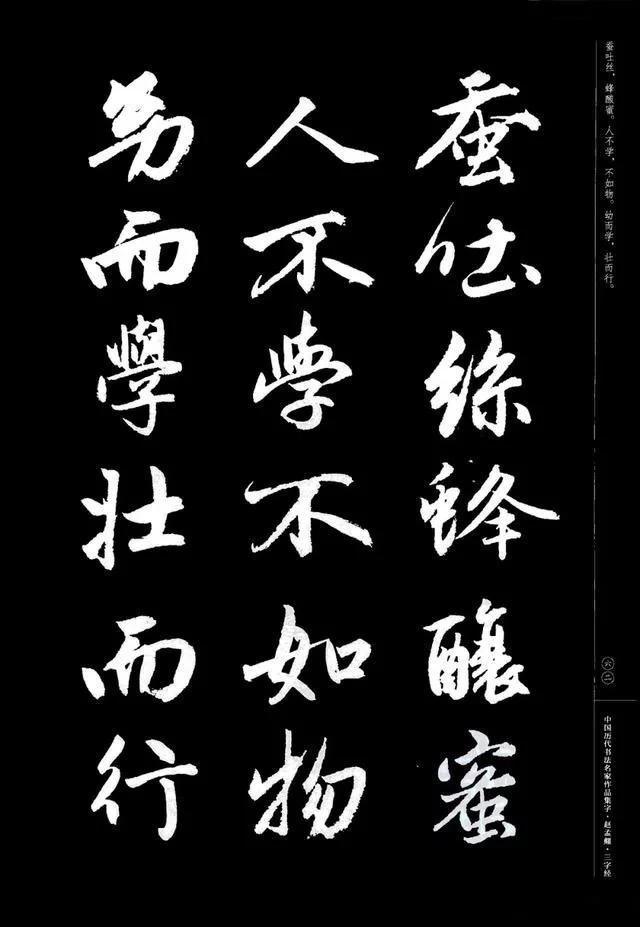 蚕吐絲蜂釀蜜
人不學不如物
幼而學壯而行
蚕吐丝，蜂酿蜜。人不学，不如物。幼而学，壮而行。
六二
中国历代书法名家作品集字·赵孟頫·三字经